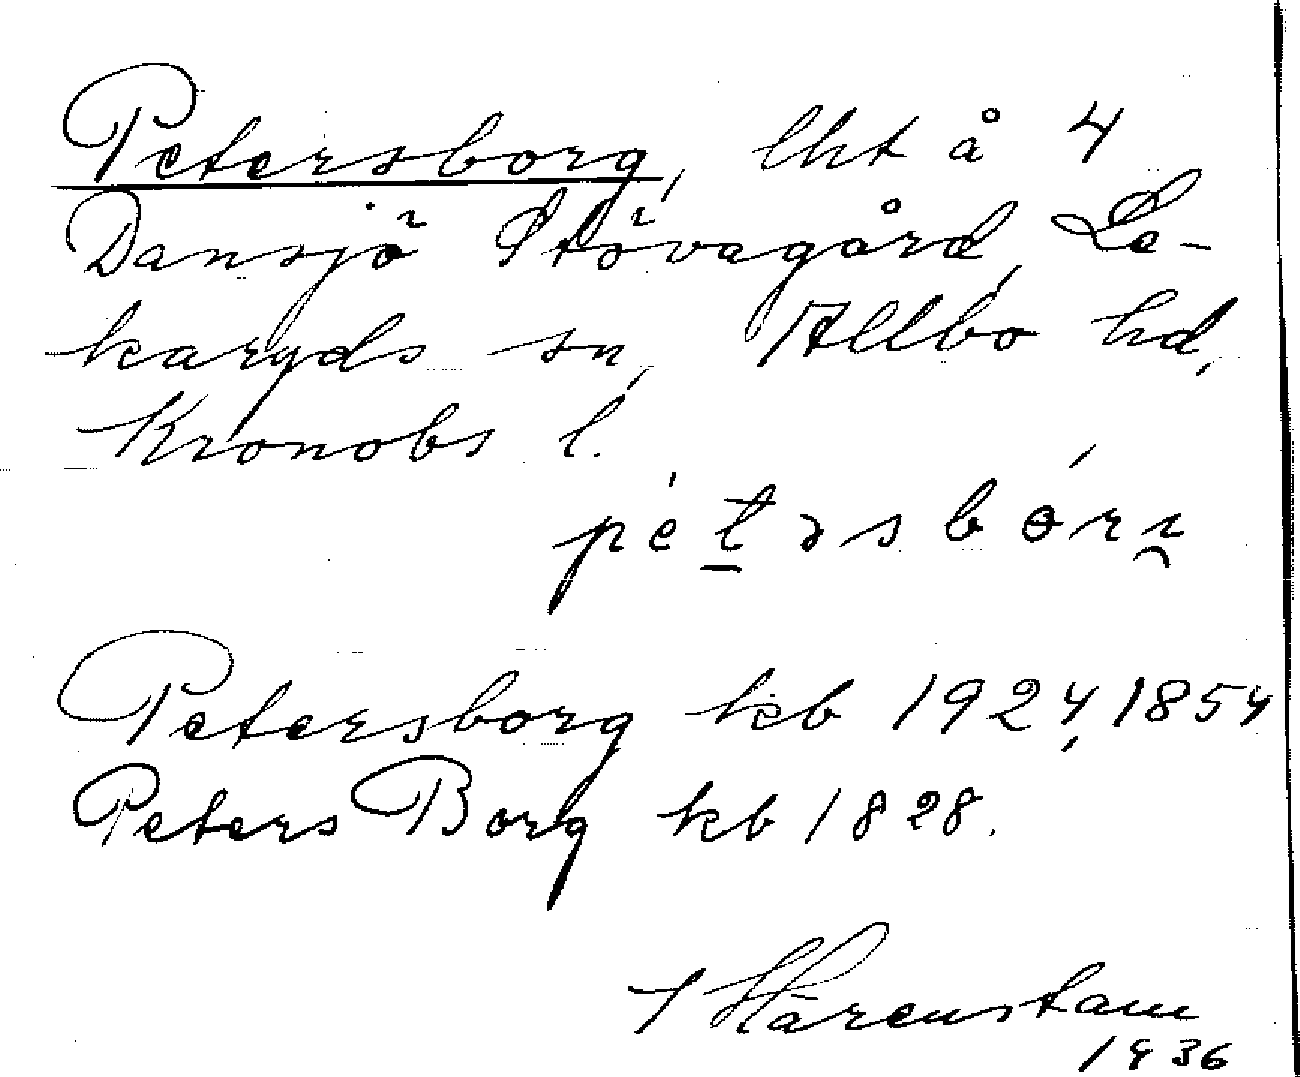 Petersborg, lht å 4
Dansjö Stövagård, Le-
karyds sn, Allbo hd,
Kronobs l.
pétərsbórı
Petersborg kb 1924, 1854
Peters Borg kb 1828.
Härenstam
1936